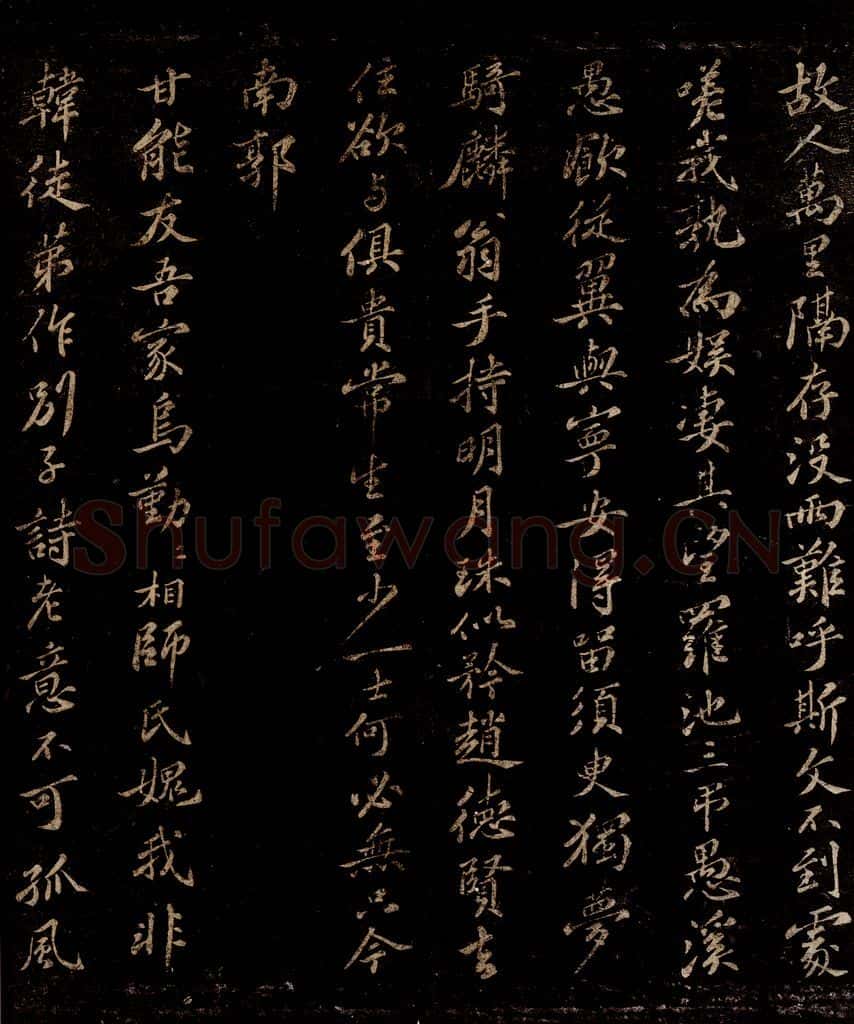 故人萬里隔存没兩難呼斯文不到處
嗟我孰為娱淒其望羅池三弔愚溪
愚從翼與寧安得留須臾獨夢
騎麟翁手持明月珠似矜趙德賢去
住欲与俱貴常生至少一士何必無只今
南郭
甘能友吾家烏勤〻相師氏媿我非
韓徒第作別子詩老意不可孤風
Shufawang.CN